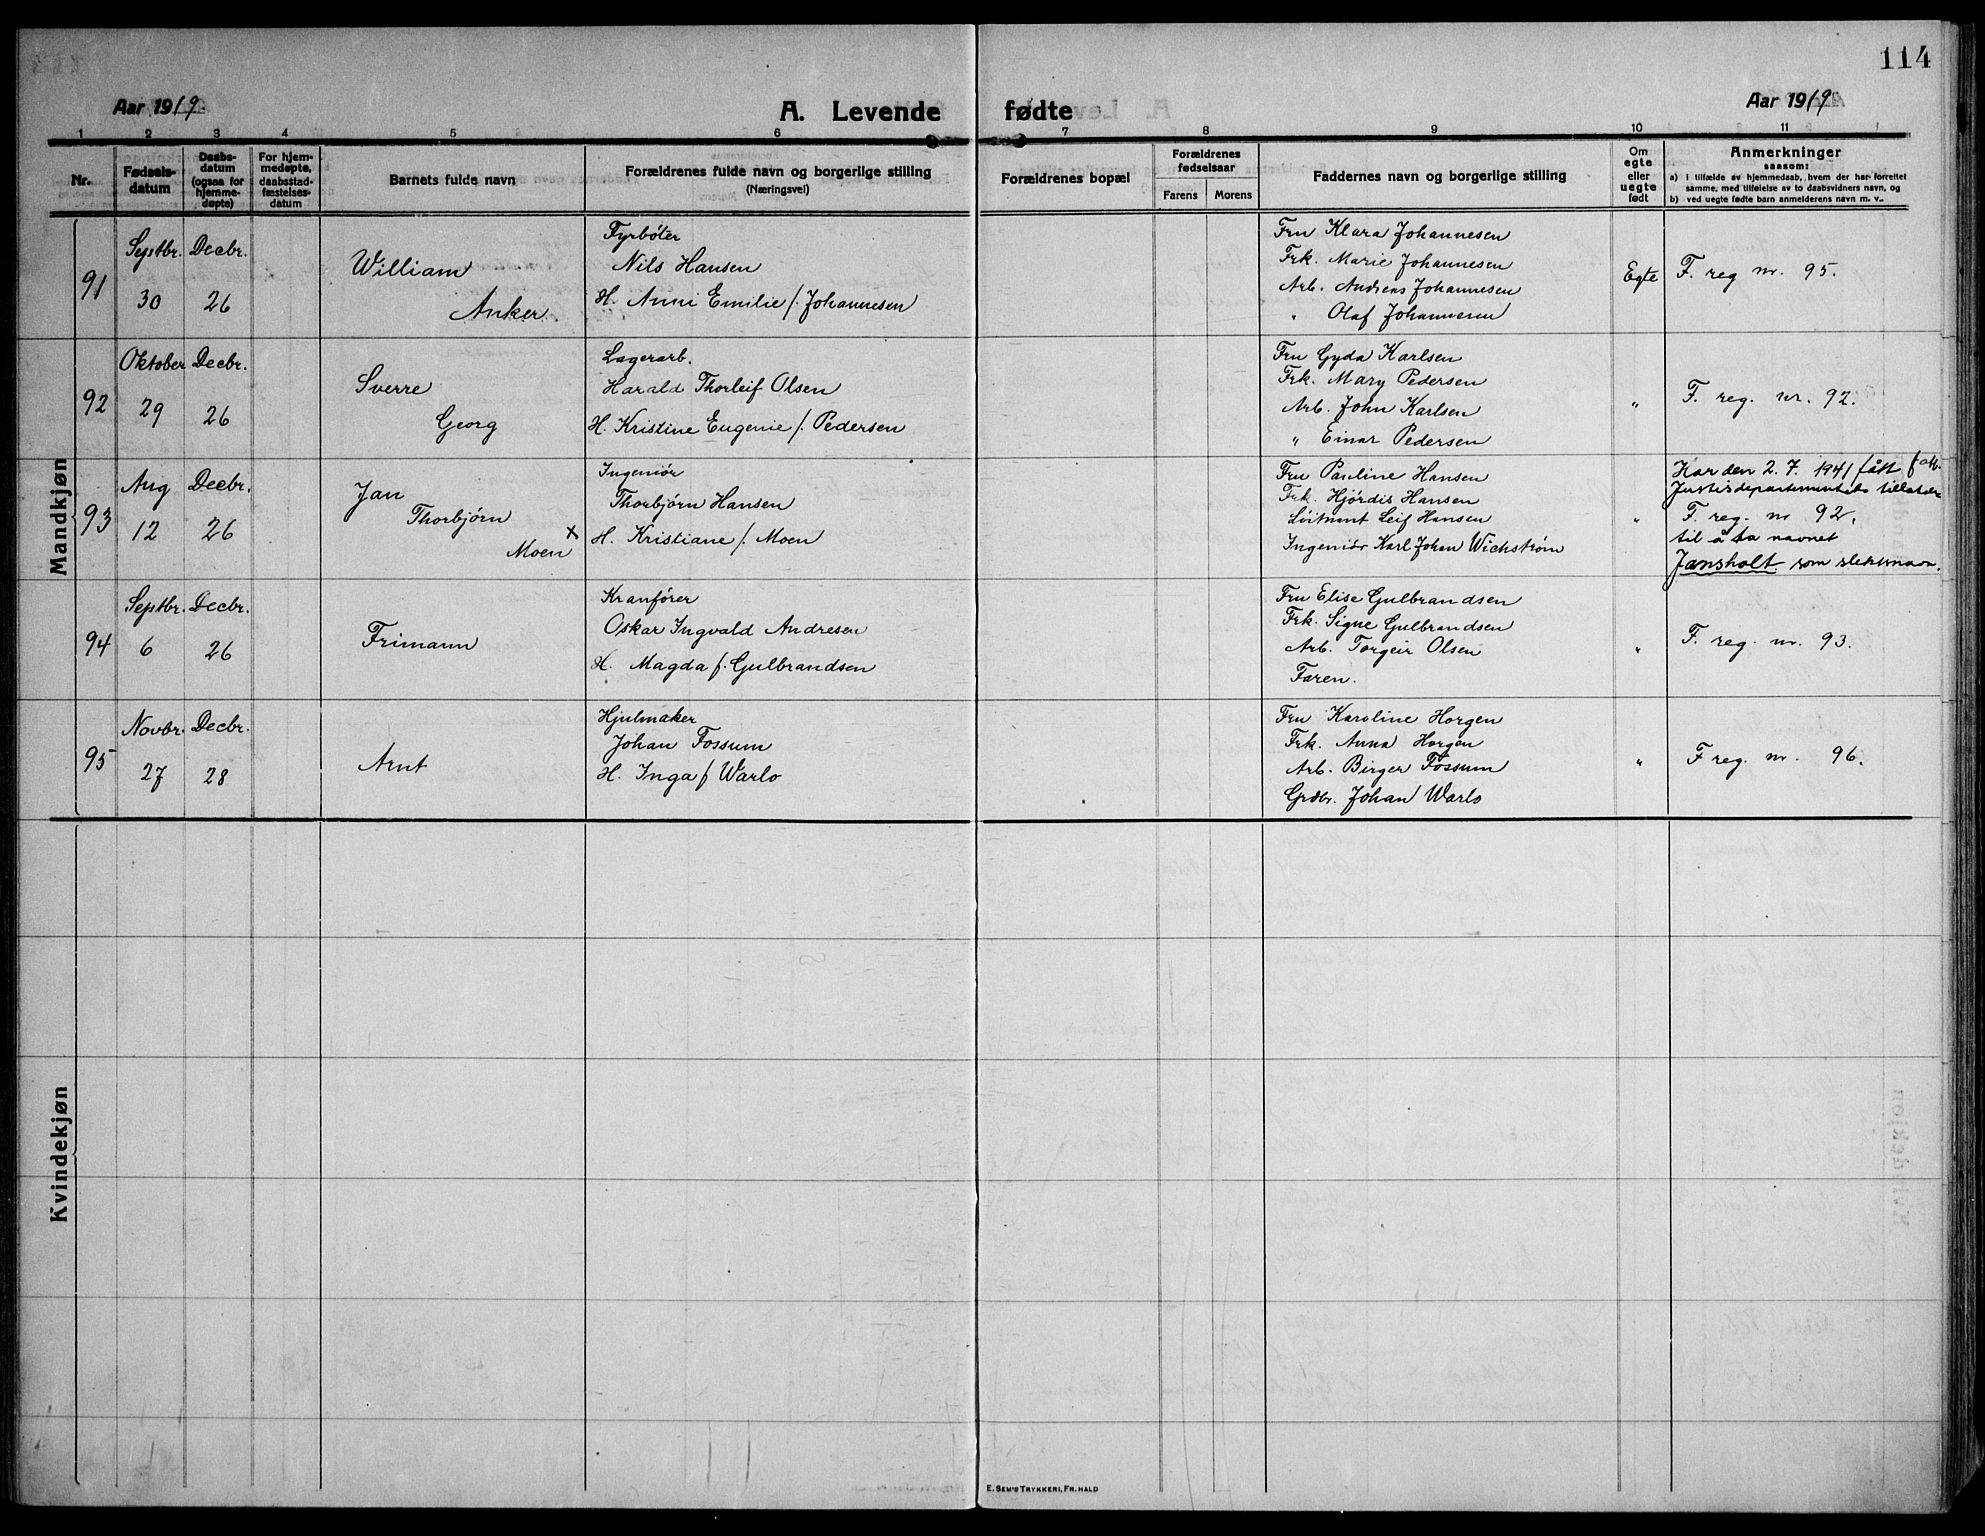 114
Aar 1919.
A. Levende fødte
Aar 1919
1 2 3 4 5 6 7 8 9 10 11
Nr.
Fødsels-
datum
Daabs-
datum
(ogsaa for
hjemme-
døpte)
For hjem-
medøpte,
daabsstad-
fæstelses-
datum
Barnets fulde navn
Forældrenes fulde navn og borgerlige stilling
(Næringsvei)
Forældrenes bopæl
Forældrenes
fødselsaar
Farens Morens
Faddernes navn og borgerlige stilling
Om
egte
eller
uegte
født
Anmerkninger
saasom:
a) i tilfælde av hjemmedaab, hvem der har forrettet
samme, med tilføielse av to daabsvidners navn, og
b) ved uegte fødte barn anmelderens navn m. v..
Mandkjøn
91
Septbr.
30
Decbr.
26
William
Anker
Fyrbøter
Nils Hansen
H. Anni Emilie f. Johannesen
Fru Klara Johannesen
Frk. Marie Johannesen
Arb. Andreas Johannesen
" Olaf Johannesen
Egte
F. reg nr. 95.
92
Oktober
29
Decbr.
26
Sverre
Georg
Lagerarb.
Harald Thorleif Olsen
H. Kristine Eugenie f. Pedersen
Fru Gyda Karlsen
Frk. Mary Pedersen
Arb. John Karlsen
" Einar Pedersen
"
F. reg. nr. 92.
93
Aug
12
Decbr.
26
Jan
Thorbjørn
Moen x
Ingeniør
Thorbjørn Hansen
H. Kristiane f. Moen
Fru Pauline Hansen
Frk. Hjørdis Hansen
Løitnant Leif Hansen
Ingeniør Karl Johan Wichstrøm
"
Har den 2. 7. 1941 fått
Justisdepartementets tillatelse
F. reg. nr 92.
til å ta navnet
Jansholt som slektsnavn.
94
Septbr.
6
Decbr.
26
Frimann
Kranfører
Oskar Ingvald Andresen
H. Magda f. Gulbrandsen
Fru Elise Gulbrandsen
Frk. Signe Gulbrandsen
Arb. Torgeir Olsen
Faren.
"
F. reg. nr. 93.
95
Novbr.
27
Decbr.
28
Arnt
Hjulmaker
Johan Fossum
H. Inga f Warlo
Fru Karoline Horgen
Frk. Anna Horgen
Arb. Birger Fossum
Grdbr. Johan Warlo
"
F reg. nr. 96.
Kvindekjøn
E. SEM'S TRYKKERI, FR.HALD